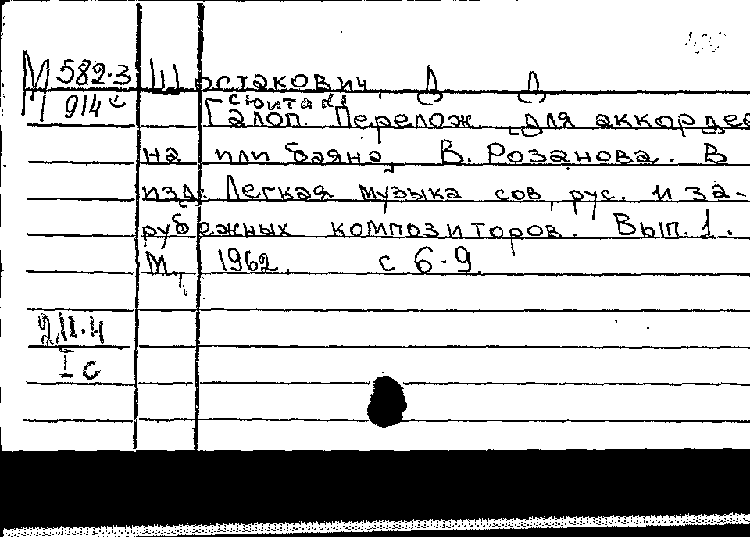 М 582-3 Шостакович, Д. Д.
914 [Сюита]
Галоп. Перелож. для аккордео
на или баяна, В. Розанова. В
изд: Легкая музыка сов, рус. и за-
рубежных композиторов. Вып. 1.
М., 1962. с 6-9.
2.11.4
I с